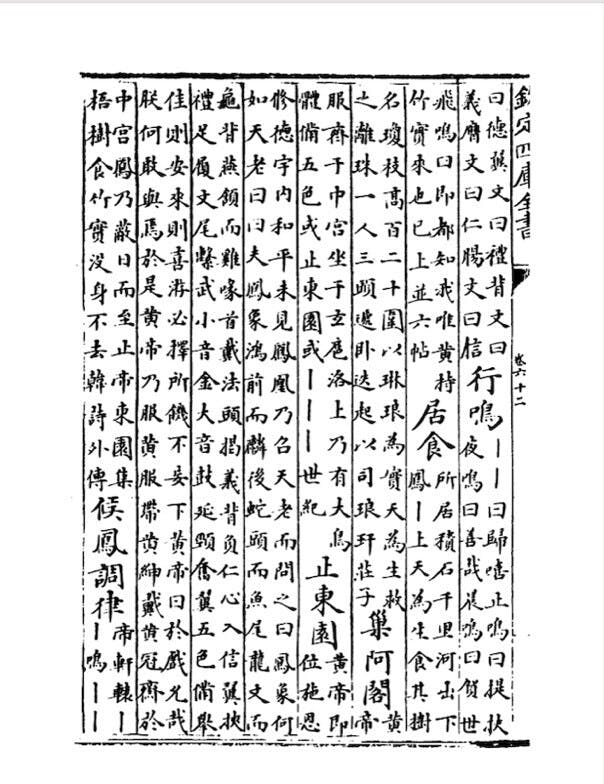 欽定四庫全書 卷六十二
曰德翼文曰禮背文曰義膺文曰仁腸文曰信行鳴｜｜曰歸嬉止鳴曰提扶夜鳴曰善哉晨鳴曰賀世
飛鳴曰即都知我唯黄持竹實來也已上並六帖居食所居積石千里河出下鳳｜上天為生食其樹
名瓊枝高百二十圍以琳琅為實天為生救之離珠一人三頭遞卧迭起以司琅玕莊子巢阿閣黄帝
服齋于中宫坐于玄扈洛上乃有大鳥體備五色或止東園或｜｜｜世紀止東園黄帝即位施恩
修德宇内和平未見鳳凰乃召天老而問之曰鳳象何如天老曰曰夫鳳象鴻前而麟後蛇頭而魚尾龍文而
龜背燕頷而雞喙首戴法頭揭義背負仁心入信翼挾禮足履文尾繫武小音金大音鼓延頸奮翼五色備舉
佳則安來則喜游必擇所饑不妄下黄帝曰於戲允哉朕何敢與焉於是黄帝乃服黄服帶黄紳戴黄冠齋於
中宫鳳乃蔽日而至止帝東園集梧樹食竹實没身不去韓詩外傳候鳳調律帝軒轅｜｜鳴｜｜